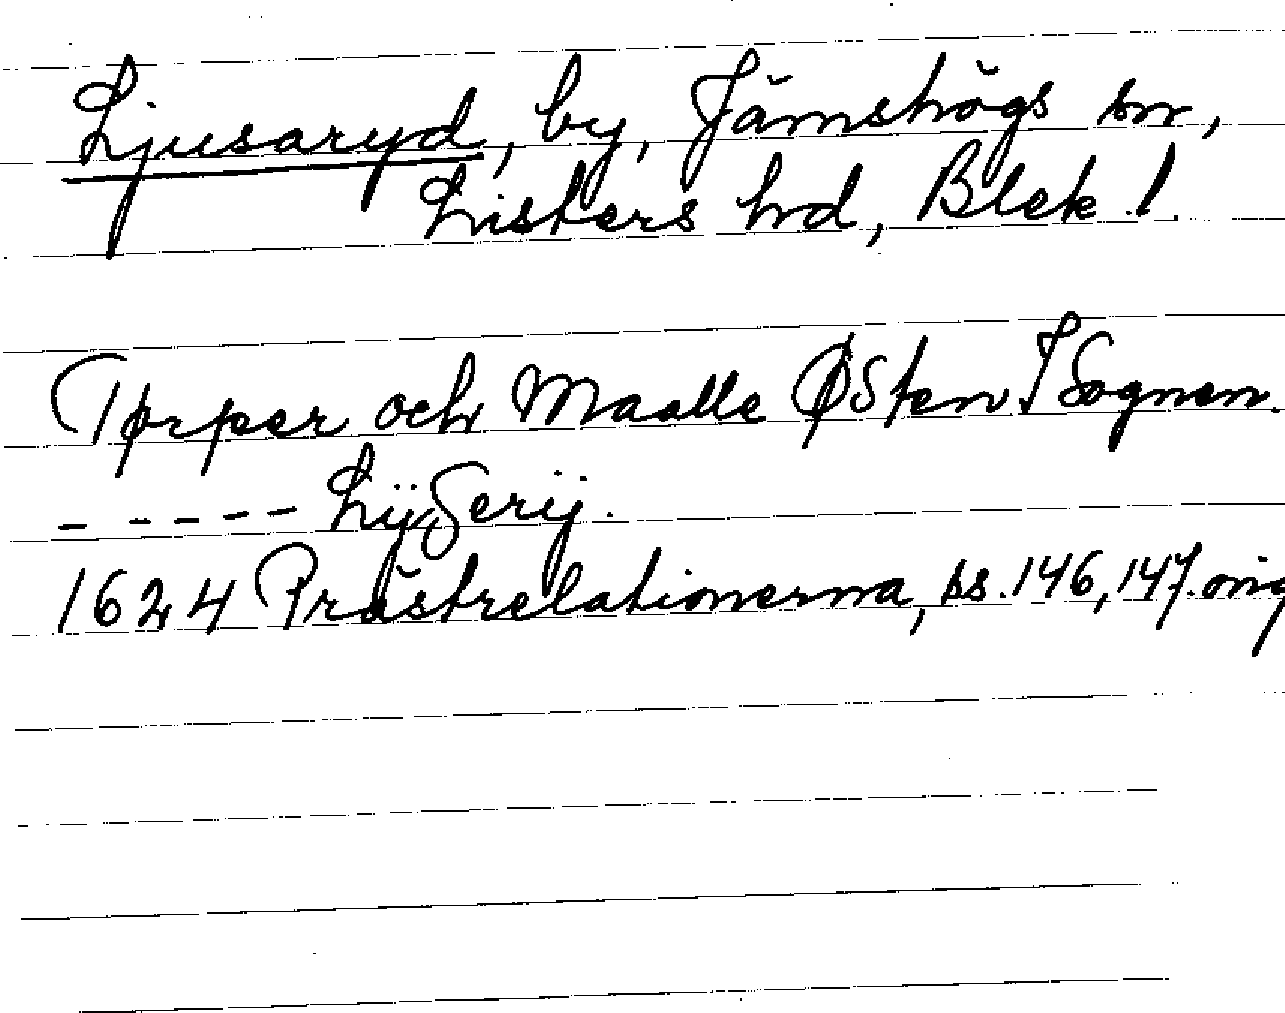 Ljusaryd, by, Jämshögs sn,
Listers hd, Blek. l.
Tørper och Maalle Østen I Sognen.
- - - - - Lÿserÿ.
1624 Prästrelationerna, ss. 146, 147. orig